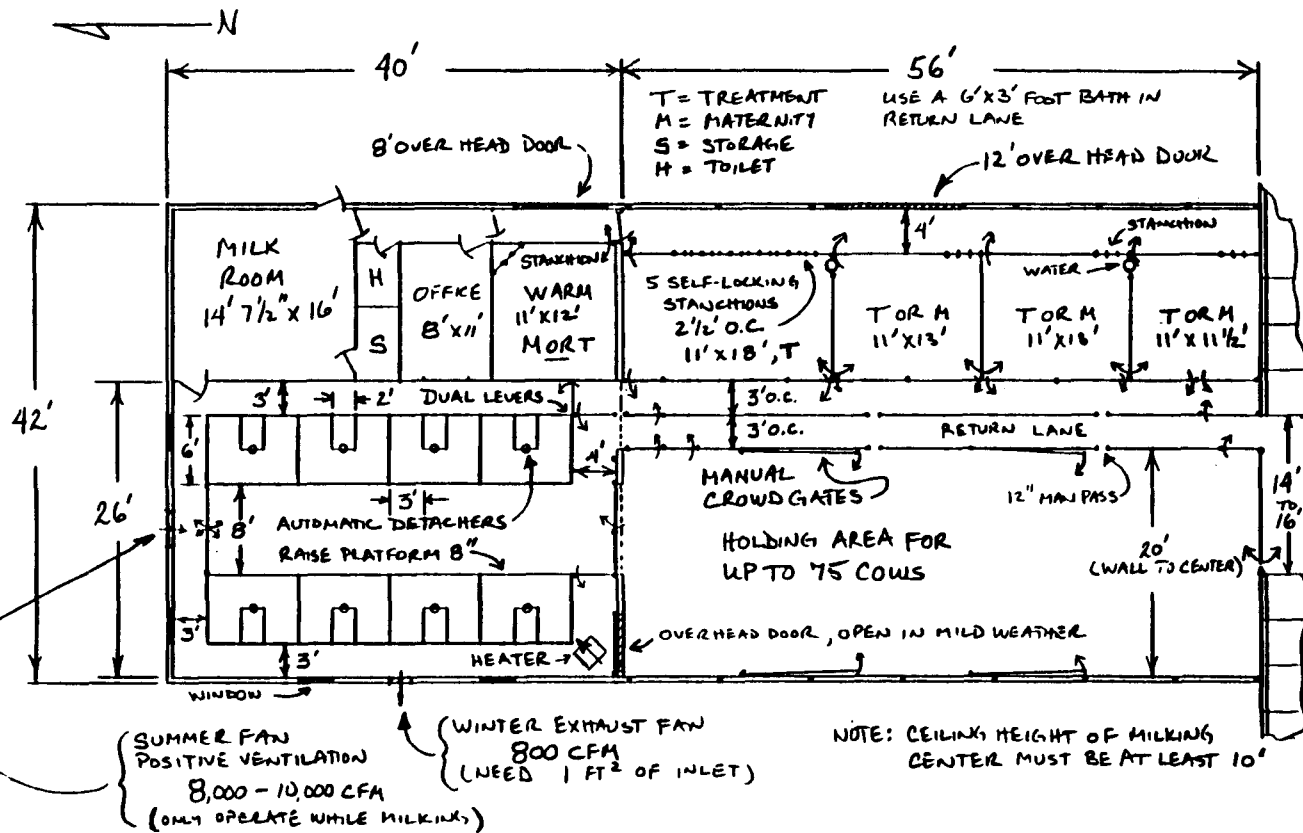 N
40'
56'
T = TREATMENT
M = MATERNITY
S = STORAGE
H = TOILET
USE A 6'X3' FOOT BATH IN
RETURN LANE
8' OVER HEAD DOOR
12' OVER HEAD DOOR
MILK
ROOM
14' 7 1/2" X 16'
H
S
OFFICE
8' X 11'
STANCHION
WARM
11' X 12'
M OR T
4'
STANCHION
WATER
5 SELF-LOCKING
STANCHIONS
2 1/2' O.C.
11' X 18', T
T OR M
11' X 13'
T OR M
11' X 13'
T OR M
11' X 11 1/2'
42'
26'
3'
2'
DUAL LEVERS
3' O.C.
3' O.C.
RETURN LANE
6'
4'
8'
3'
AUTOMATIC DETACHERS
RAISE PLATFORM 8"
MANUAL
CROWD GATES
12" MAN PASS
14'
TO
16'
HOLDING AREA FOR
UP TO 75 COWS
20'
(WALL TO CENTER)
3'
3'
HEATER
OVERHEAD DOOR, OPEN IN MILD WEATHER
WINDOW
SUMMER FAN
POSITIVE VENTILATION
8,000 - 10,000 CFM
(ONLY OPERATE WHILE MILKING)
WINTER EXHAUST FAN
800 CFM
(NEED 1 FT² OF INLET)
NOTE: CEILING HEIGHT OF MILKING
CENTER MUST BE AT LEAST 10'